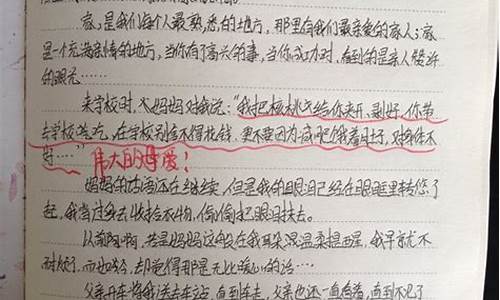 家，是我们每个人最熟悉的地方，那里有我们最亲爱的家人；家
是一个充满亲情的地方，当你有了高兴的事，当你成功时，看到的是亲人赞许
的眼光……
来学校时，妈妈对我说："我把核桃给你夹开、剥好，你带
去学校吃，在学校别舍不得花钱，更不要因为减肥饿着肚子，对身体不
好…"伟大的母爱！
妈妈的话语还在继续，但是我的眼泪已经在眼眶里转悠了
起，我背过身去收拾衣物，偷偷把眼泪抹去。
以前啊，若是妈妈这般在我耳朵温柔提醒，我早就不
耐烦了，而如今，却觉得那是无比暖心的话……
父亲开车将我送去车站，直到车走，父亲也还一直看着，直到不见了